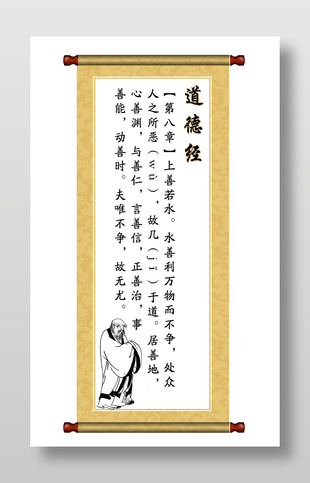 道德经
【第八章】上善若水。水善利万物而不争，处众
人之所恶（wù），故几（jī）于道。居善地，
心善渊，与善仁，言善信，正善治，事
善能，动善时。夫唯不争，故无尤。